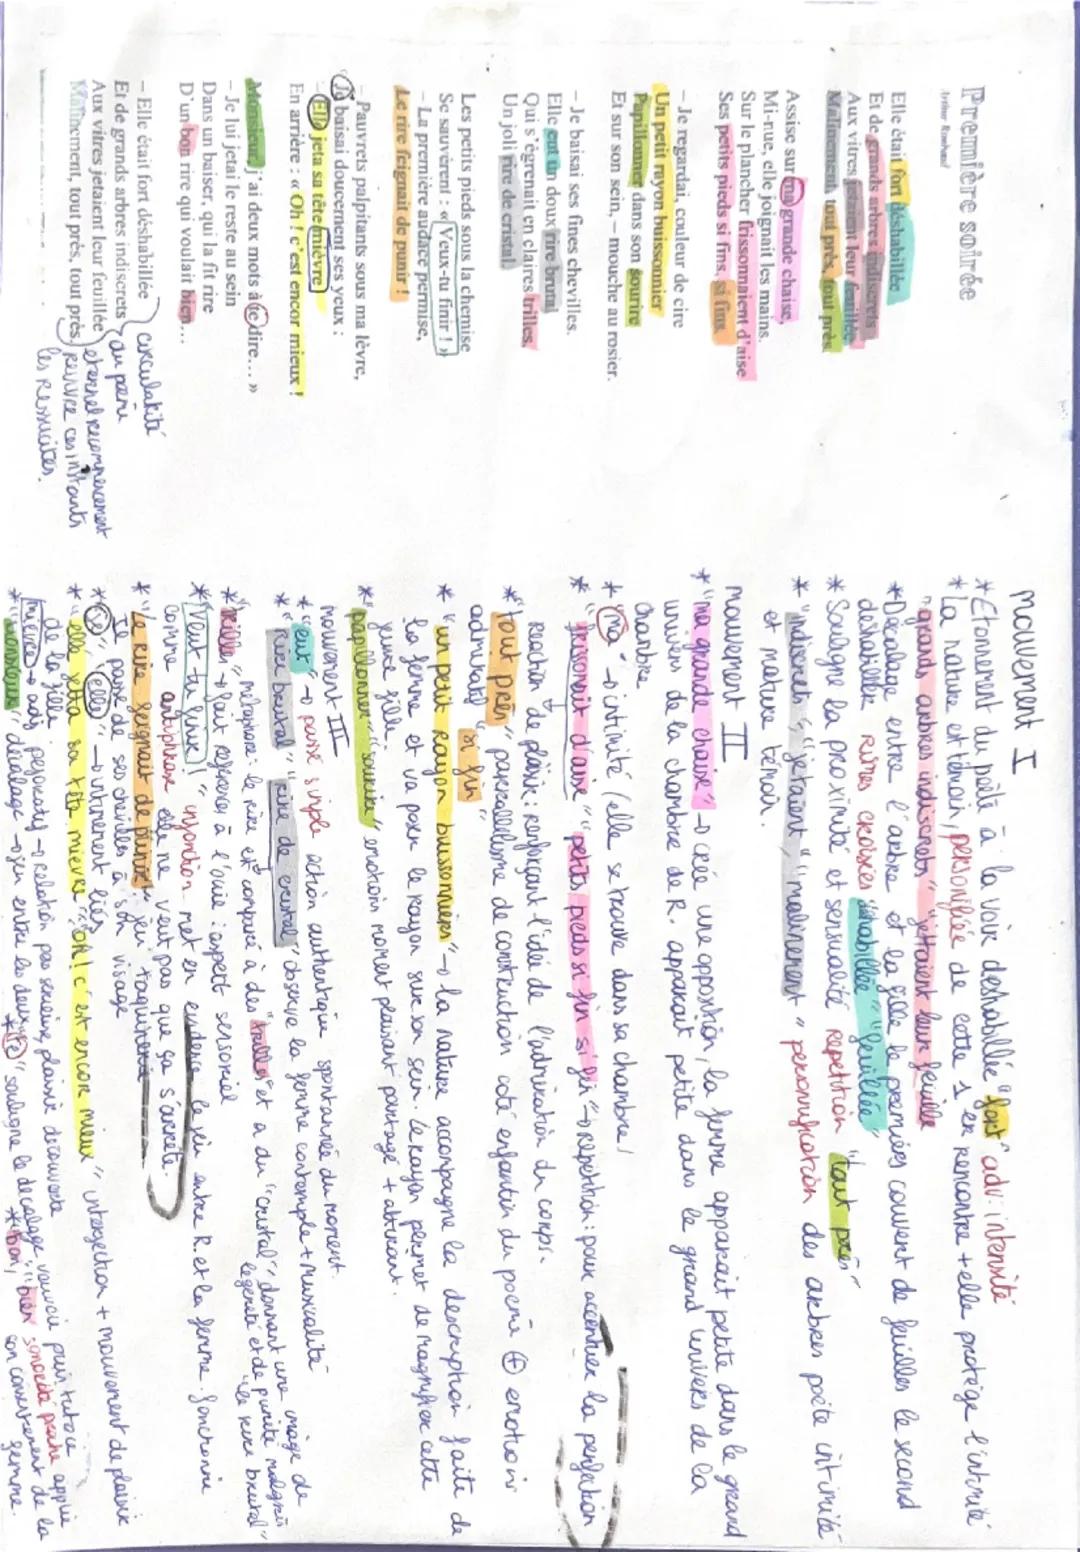 Première soirée
Arthur Rimbaud
Elle était fort déshabillée
Et de grands arbres indiscrets
Aux vitres jetaient leur feuillée
Malinement, tout près, tout près.
Assise sur ma grande chaise,
Mi-nue, elle joignait les mains.
Sur le plancher frissonnaient d'aise
Ses petits pieds si fins, si fins.
– Je regardai, couleur de cire
Un petit rayon buissonnier
Papillonner dans son sourire
Et sur son sein, – mouche au rosier.
– Je baisai ses fines chevilles.
Elle eut un doux rire brutal
Qui s'égrenait en claires trilles,
Un joli rire de cristal.
Les petits pieds sous la chemise
Se sauvèrent : « Veux-tu finir ! »
– La première audace permise,
Le rire feignait de punir !
– Pauvrets palpitants sous ma lèvre,
Je baisai doucement ses yeux :
– Elle jeta sa tête mièvre
En arrière : « Oh ! c'est encor mieux !
Monsieur, j'ai deux mots à te dire... »
– Je lui jetai le reste au sein
Dans un baiser, qui la fit rire
D'un bon rire qui voulait bien...
– Elle était fort déshabillée
Et de grands arbres indiscrets
Aux vitres jetaient leur feuillée
Malinement, tout près, tout près.
circulatité
du poème
éternel recommencement
revivre ces instants
les ressucités.
mouvement I
* Etonement du poète à la voir deshabillé "fort" adv: intensité
* la nature et témoin, personifiée de cette 1 ère rencontre + elle protège l'intimité
"grands arbres indiscrets" "jettaient leur feuille
* Décalage entre l'arbre et la fille le premières couvent de feuilles le second
deshabillée RIMES CROISÉES "déshabillée" "feuillée"
* Souligne la proximité et sensualité REPETITION "tout près"
* "indiscrets", "jetaient", "malinement" personnification des arbres poète intimité
et nature témoin.
mouvement II
* "ma grande chaise" → crée une opposition, la femme apparait petite dans le grand
univers de la chambre de R. apparait petite dans le grand univers de la
chambre
* "ma" → intimité (elle se trouve dans sa chambre)
* "frissonait d'aise" "petits pieds si fin si fin" → répétition: pour accentuer la perfection
reaction de plaisir: renforçant l'idée de l'admiration du corps.
* "tout près" parrallélisme de construction coté enfantin du poème ⊕ emotions
admiratif "si fin"
* "un petit rayon buissonniers" → la nature accompagne la description faite de
la femme et va poser le rayon sur son sein. le rayon permet de magnifier cette
jeune fille.
* "papillonner" "sourire" emotions moment plaisant partagé + attirant.
mouvement III
* "eut" → passé simple action authentique spontannée du moment.
* "rire brutal" "rire de cristal" observe la femme contemple + musicalité
métaphore: le rire est comparé à des "trilles" et a du "cristal", donnant une image de
légereté et de pureté malgrès "le rire brutal"
* "trilles" → fait reference à l'ouie : aspect sensoriel
* "Veut tu finir!" injontion met en evidence le jeu entre R. et la femme. fonctionne
comme antiphrase elle ne veut pas que ça s'arrete.
* "le rire feignait de punir" jeu taquinerie
Il passe de ses chevilles à son visage
* "Je" "elle" → intimement liés
* "elle jetta sa tête mievre "Oh! c'est encor mieux" interjection + mouvement de plaisir
de la fille
mièvre → adj pejoratif → relation pas sérieuse, plaisir découverte
* "monsieur" décalage → jeu entre les deux
* "te" souligne le decalage vouvoie puis tutoie
* "bon", "bien" sonorité proche appuie
son consentement de la
femme.